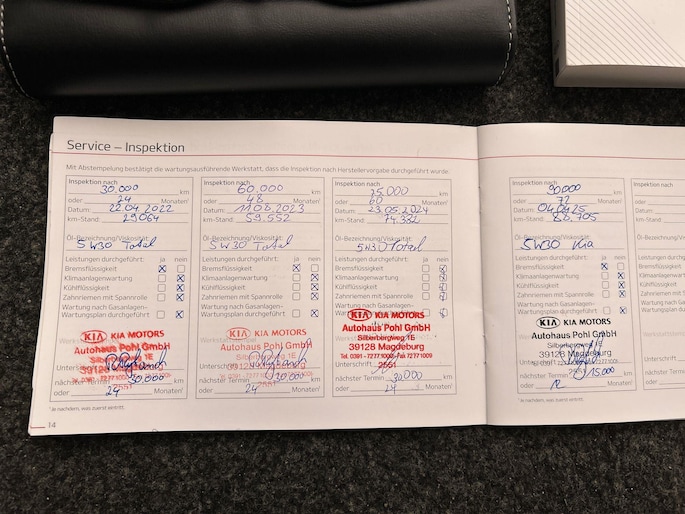 Service – Inspektion
Mit Abstempelung bestätigt die wartungsausführende Werkstatt, dass die Inspektion nach Herstellervorgabe durchgeführt wurde:
Inspektion nach
30.000 km
oder 24 Monaten¹
Datum: 22.04.2022
km-Stand: 29064
Öl-Bezeichnung/Viskosität:
5W30 Total
Leistungen durchgeführt: ja nein
Bremsflüssigkeit
Klimaanlagenwartung
Kühlflüssigkeit
Zahnriemen mit Spannrolle
Wartung nach Gasanlagen-
Wartungsplan durchgeführt
KIA KIA MOTORS
Autohaus Pohl GmbH
Silberbergweg 1E
39128 Magdeburg
Unterschrift
2551
nächster Termin 30.000 km
oder 24 Monaten¹
Inspektion nach
60.000 km
oder 48 Monaten¹
Datum: 11.08.2023
km-Stand: 59.552
Öl-Bezeichnung/Viskosität:
5W30 Total
Leistungen durchgeführt: ja nein
Bremsflüssigkeit
Klimaanlagenwartung
Kühlflüssigkeit
Zahnriemen mit Spannrolle
Wartung nach Gasanlagen-
Wartungsplan durchgeführt
KIA KIA MOTORS
Autohaus Pohl GmbH
Silberbergweg 1E
39128 Magdeburg
Unterschrift
2551
nächster Termin km
oder 24 Monaten¹
Inspektion nach
75.000 km
oder 60 Monaten¹
Datum: 23.05.2024
km-Stand: 74.332
Öl-Bezeichnung/Viskosität:
5W30 Total
Leistungen durchgeführt: ja nein
Bremsflüssigkeit
Klimaanlagenwartung
Kühlflüssigkeit
Zahnriemen mit Spannrolle
Wartung nach Gasanlagen-
Wartungsplan durchgeführt
KIA KIA MOTORS
Autohaus Pohl GmbH
Silberbergweg 1E
39128 Magdeburg
Tel. 0391 - 7277100 - Fax 72771009
Unterschrift 2551
nächster Termin 30.000 km
oder 24 Monaten¹
¹ Je nachdem, was zuerst eintritt.
14
Inspektion nach
90.000 km
oder 72 Monaten¹
Datum: 04.04.25
km-Stand: 88.705
Öl-Bezeichnung/Viskosität:
5W30 Kia
Leistungen durchgeführt: ja nein
Bremsflüssigkeit
Klimaanlagenwartung
Kühlflüssigkeit
Zahnriemen mit Spannrolle
Wartung nach Gasanlagen-
Wartungsplan durchgeführt
KIA KIA MOTORS
Autohaus Pohl GmbH
Silberbergweg 1E
39128 Magdeburg
Unterschrift
2551
nächster Termin 15.000 km
oder 12 Monaten¹
¹ Je nachdem, was zuerst eintritt.
Inspektion nach
oder
Datum:
km-Stand: